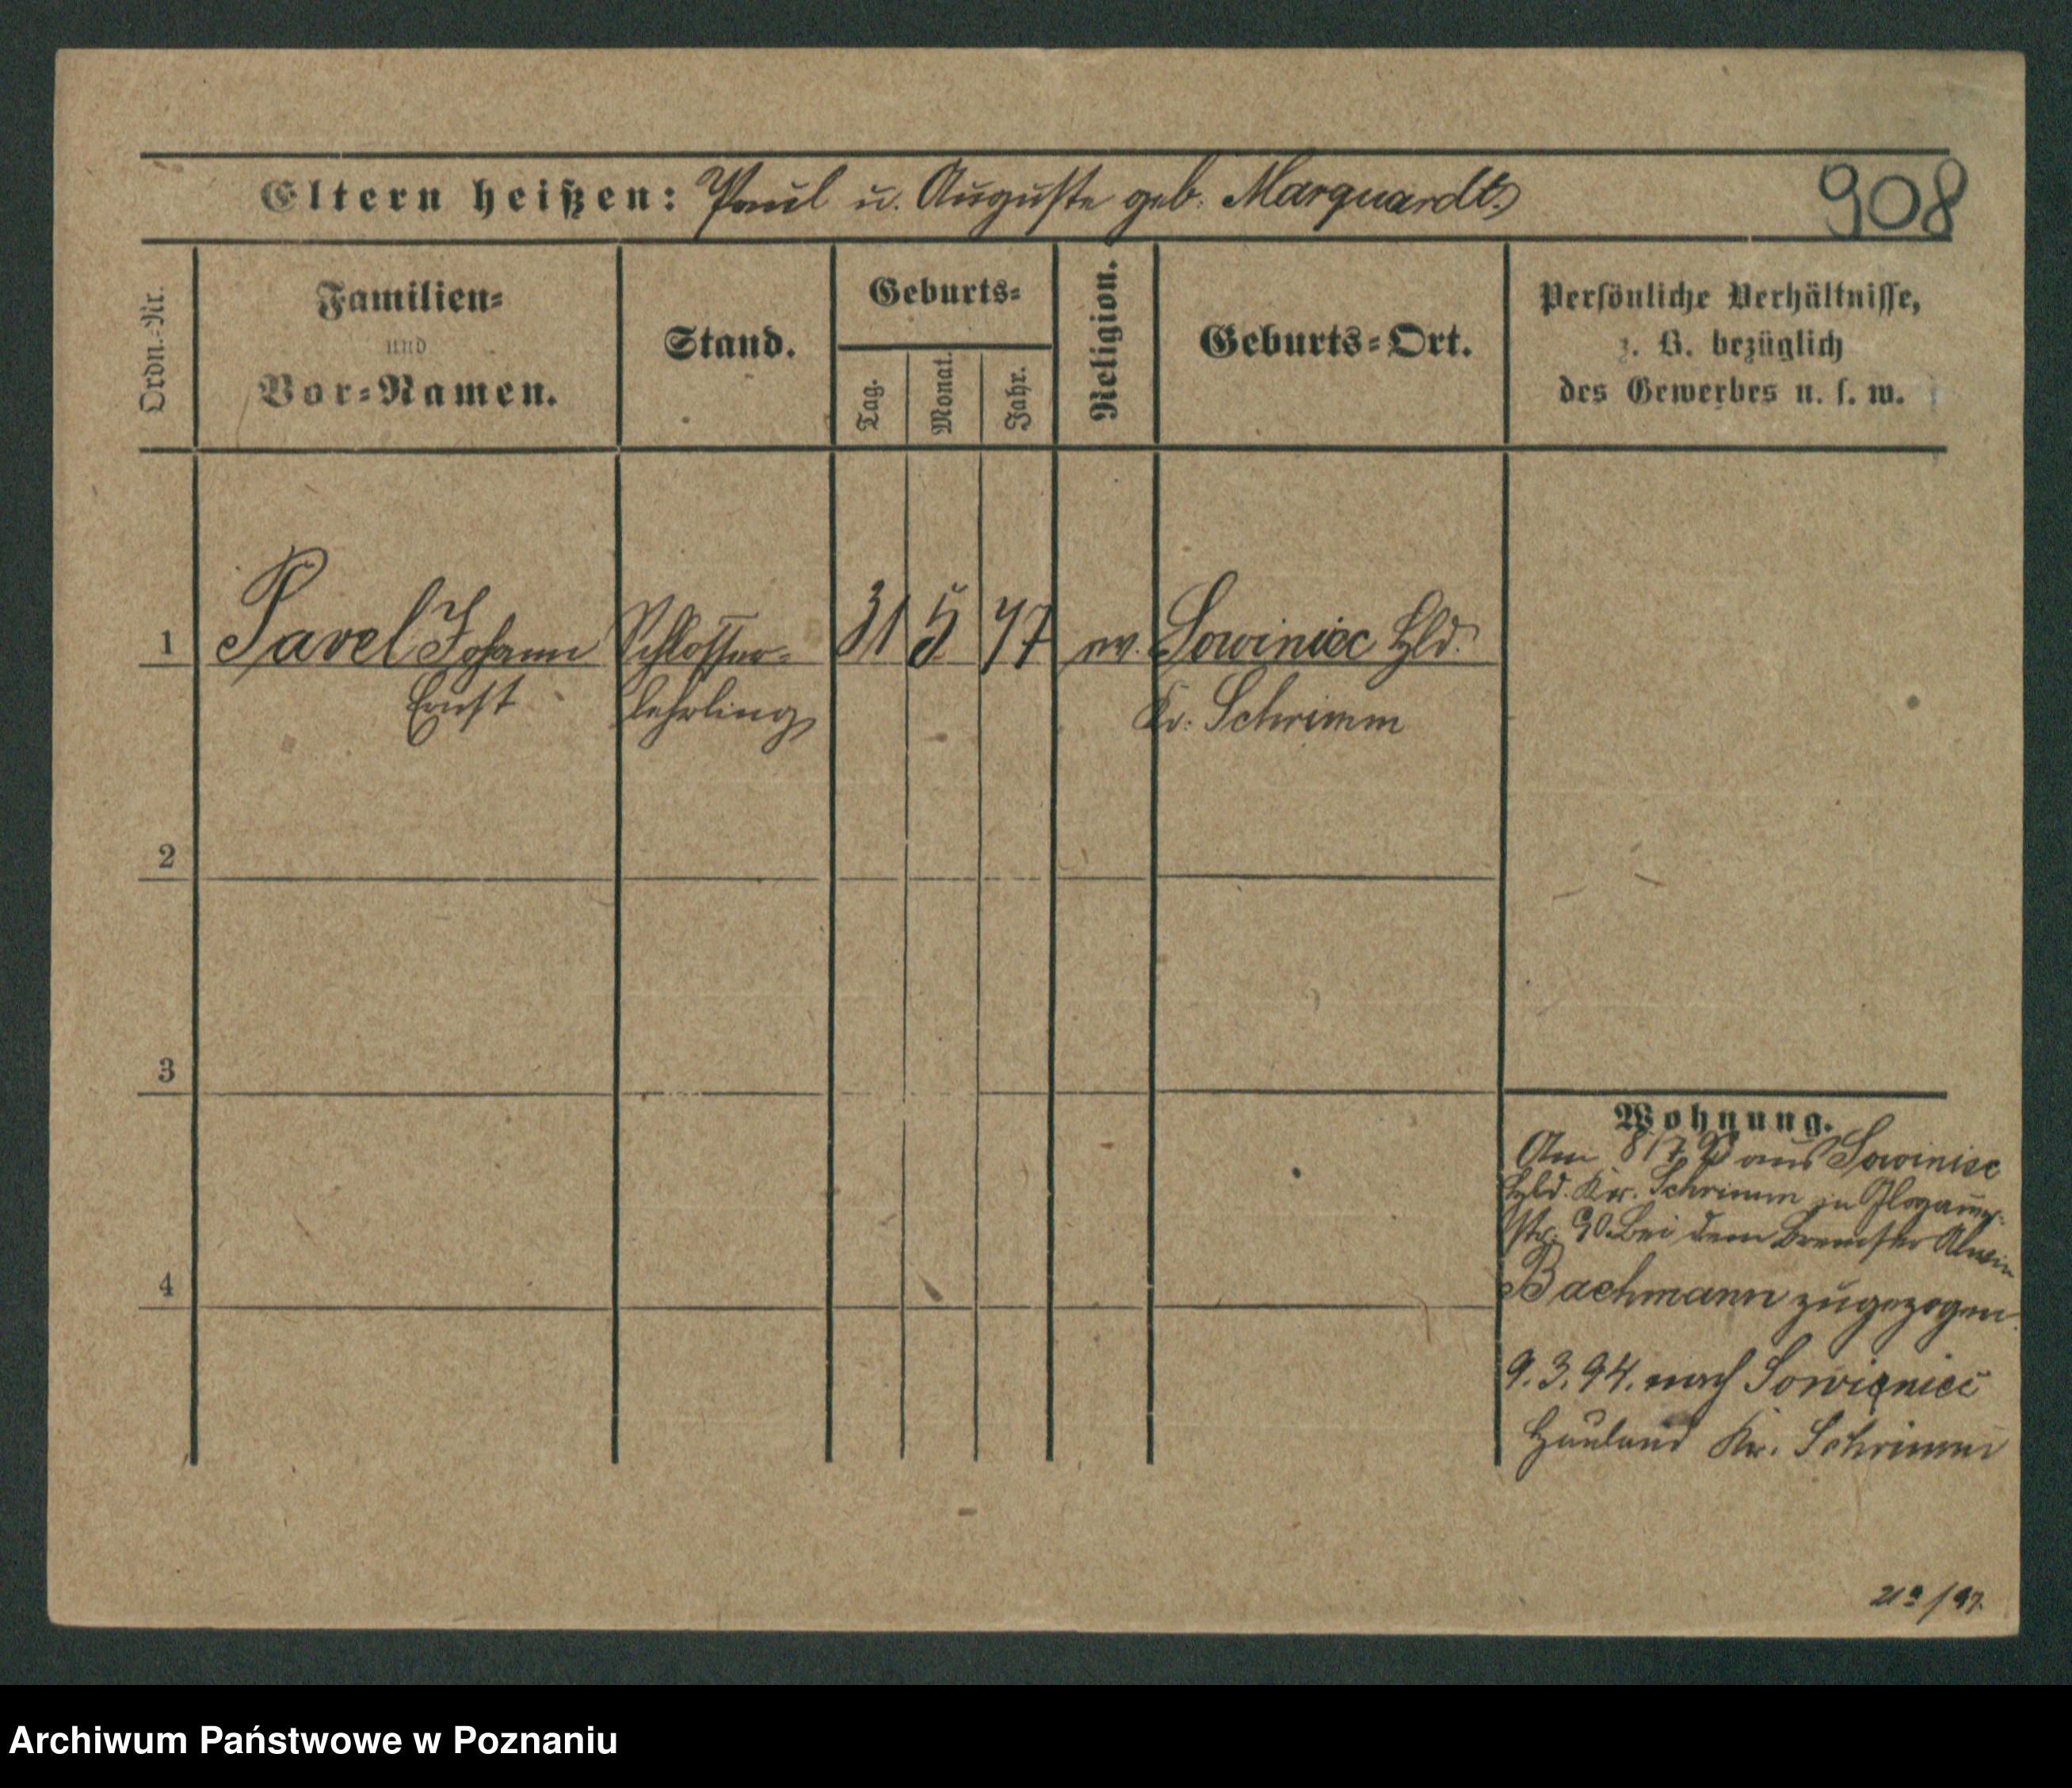 Eltern heißen: Paul u. Auguste geb. Marquardt
908
Ordn.-Nr.
Familien-
und
Vor-Namen.
Stand.
Geburts-
Tag.
Monat.
Jahr.
Religion.
Geburts-Ort.
Persönliche Verhältnisse,
z. B. bezüglich
des Gewerbes u. s. w.
1 Pavel Johann Schlosser- 31 5 77 ev. Sowiniec Hld.
Ernst lehrling Kr. Schrimm
2
3
4
Wohnung.
Am 8/7 93 aus Sowiniec
Hld. Kr. Schrimm in Glogauer-
Str. 90 bei dem Bremser Alwin
Bachmann zugezogen.
9.3.94. nach Sowieniec
Hauland Kr. Schrimm
Archiwum Państwowe w Poznaniu